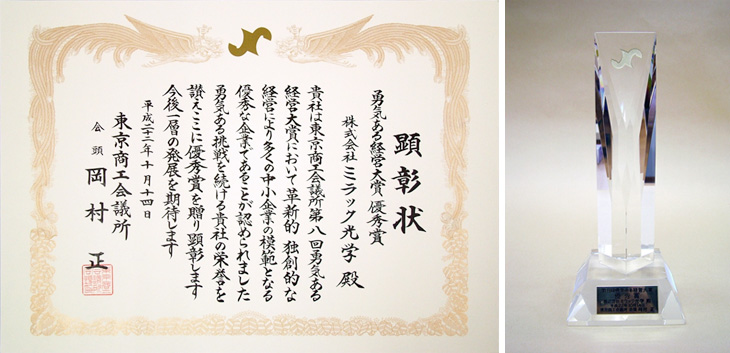 顕彰状
勇気ある経営大賞 優秀賞
株式会社 ミラック光学 殿
貴社は東京商工会議所第八回勇気ある
経営大賞において革新的 独創的な
経営により多くの中小企業の模範となる
優秀な企業であることが認められました
勇気ある挑戦を続ける貴社の栄誉を
讃えここに優秀賞を贈り顕彰します
今後一層の発展を期待します
平成二十二年十月十四日
東京商工会議所
会頭 岡村 正